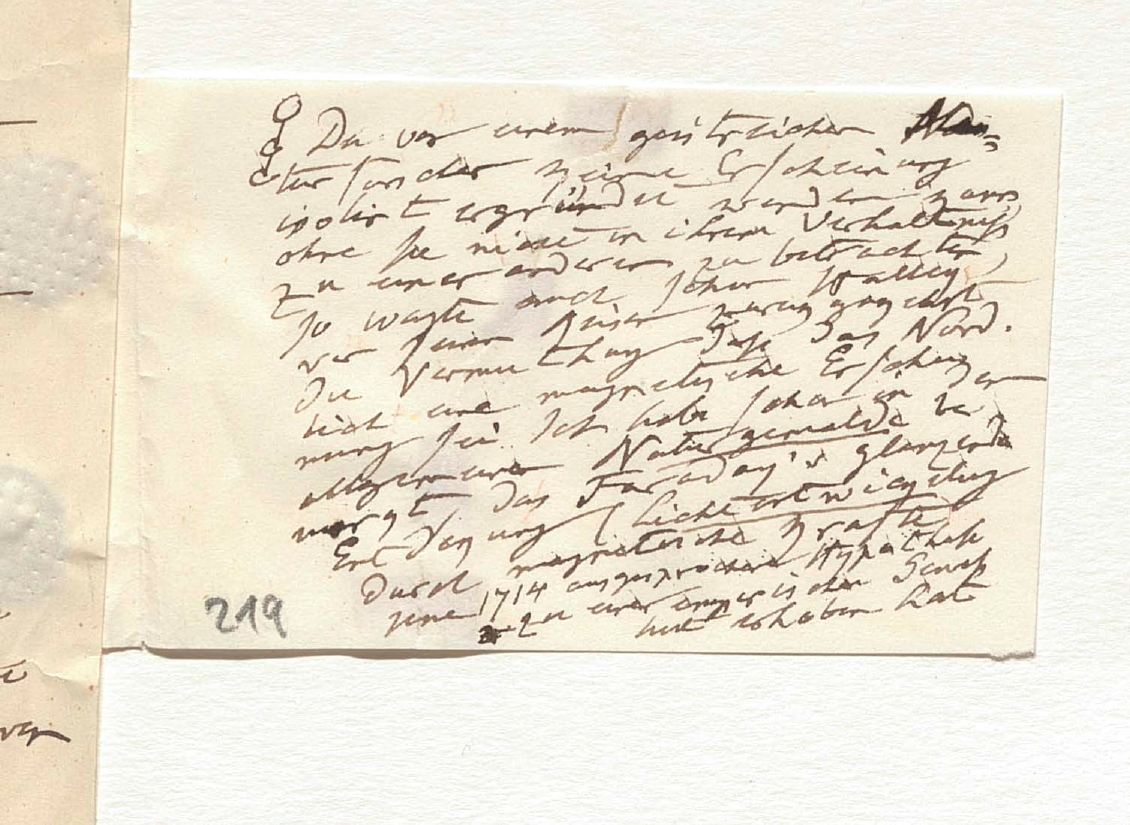 Da vor einem geistreichen Na=
turforscher keine Erscheinung
isolirt ergründet werden kann
ohne sie nicht in ihrem Verhältniß
zu einer anderen zu betrachten,
so wagte auch schon Halley
vor seiner Reise
die Vermuthung daß das Nord-
licht eine magnetische Erschei
nung sei. Ich habe schon in der
allgemeinen Naturgemälde be
merkt das Faraday's glänzende
Entdekung (Lichtentwicklung
durch magnetische Kräfte)
jene 1714 ausgesprochene Hypothese
zu einer empirischen Gewiß
heit erhoben hat
219